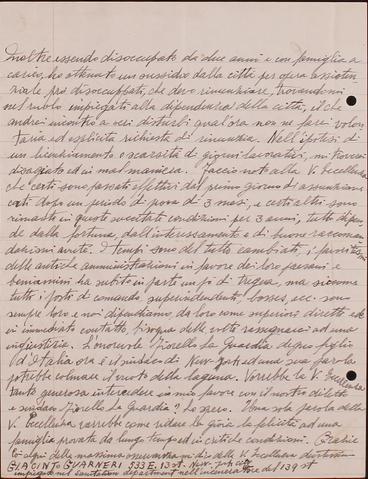 Inoltre essendo disoccupato da due anni e con famiglia a
carico, ho ottenuto un sussidio dalla città per opera assisten
ziale pro disoccupati, che devo rinunziare, trovandomi
nel ruolo impiegati alla dipendenza della città, il che
andrei incontro a seri disturbi qual'ora non ne farei volon
taria ed esplicita richiesta di rinunzia. Nell'ipotesi di
un licenziamento e scarsità di giorni lavorativi, mi troverei
disagiato ed in mal maniera. Faccio noto alla V. Eccellenza
che certi sono passati effettivi dal primo giorno d'assunzione
certi dopo un periodo di prova di 3 mesi, e certi altri sono
rimasti in queste succitate condizioni per 3 anni, tutto dipen
de dalla fortuna, dall'interessamento e di buone raccoman
dazioni avute. I tempi sono del tutto cambiati, i favoritismi
delle antiche amministrazioni in favore dei loro paesani e
beniamini ha subito in parte un pò di tregua, ma siccome
tutti i posti di comando, superindendenti, bosses, ecc. sono
sempre loro e noi dipendiamo da loro come superiori diretti ed
in immediato contatto, bisogna delle volte rassegnarci ad una
ingiustizia. L'onorevole Fiorello La Guardia degno figlio
d'Italia ora è il sindaco di New-York ed una sua parola
potrebbe colmare il vuoto della laguna. Vorrebbe la V. Eccellenza
tanto generosa intercedere in mio favore con il nostro diletto
sindaco Fiorello La Guardia? Lo spero. Una sola parola della
V. Eccellenza sarebbe come ridare la gioia la felicità ad una
famiglia provata da lungo tempo ed in critiche condizioni. Grazie
Coi sensi della massima osservanza mi dico della V. Eccellenza
GIACINTO GUARNERI 533 E. 13 st. New-York city
impiegato nel sanitation department nell'incineratore del 139 st